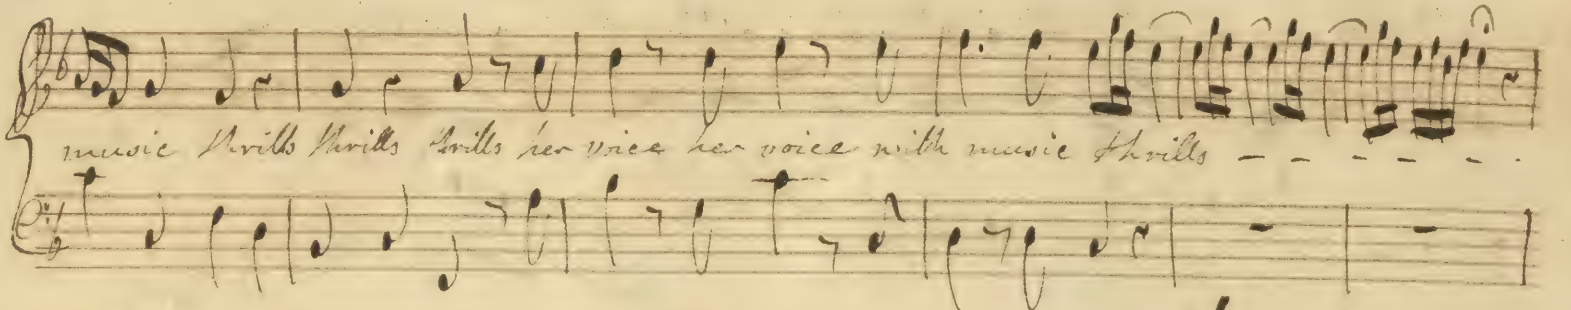 music thrills thrills thrills her voice her voice with music thrills - - - - - -